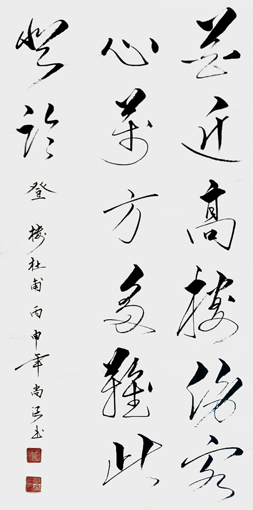 花近高樓傷客
心萬方多難此
登臨 登樓 杜甫 丙申年 尚 書